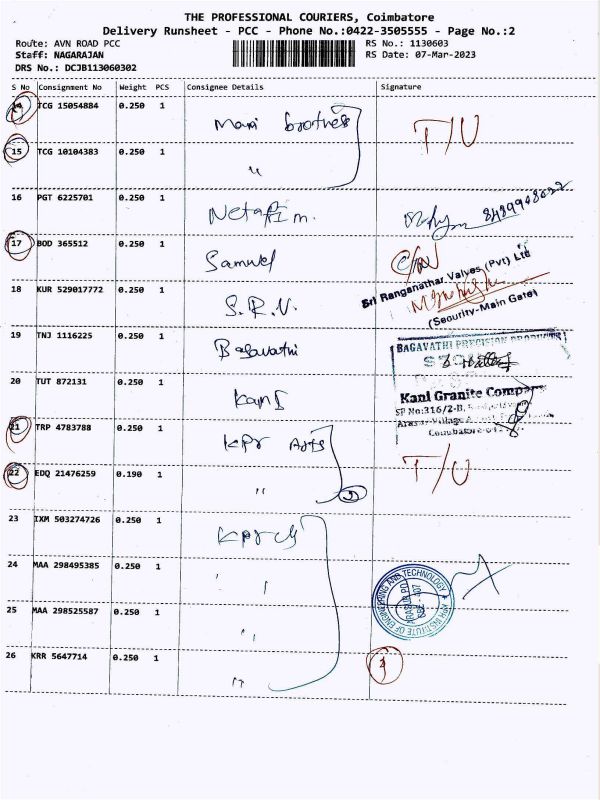 THE PROFESSIONAL COURIERS, Coimbatore
Delivery Runsheet - PCC - Phone No.:0422-3505555 - Page No.:2
Route: AVN ROAD PCC RS No.: 1130603
Staff: NAGARAJAN RS Date: 07-Mar-2023
DRS No.: DCJB113060302
S No Consignment No Weight PCS Consignee Details Signature
14 TCG 15054884 0.250 1 Mani brothers T/U
15 TCG 10104383 0.250 1 "
16 PGT 6225701 0.250 1 Netafim.
17 BOD 365512 0.250 1 Samuel
Sri Ranganathar Valves (Pvt) Ltd
(Security-Main Gate)
18 KUR 529017772 0.250 1 S.R.V.
19 TNJ 1116225 0.250 1 Bagavathi
BAGAVATHI PRECISION PRODUCTS
20 TUT 872131 0.250 1 Kani
Kani Granite Company
SF No:316/2-B,
21 TRP 4783788 0.250 1 KPR Arts
22 EDQ 21476259 0.190 1 " 2 T/U
23 IXM 503274726 0.250 1
24 MAA 298495385 0.250 1 "
INSTITUTE OF ENGINEERING AND TECHNOLOGY
25 MAA 298525587 0.250 1 "
26 KRR 5647714 0.250 1 "